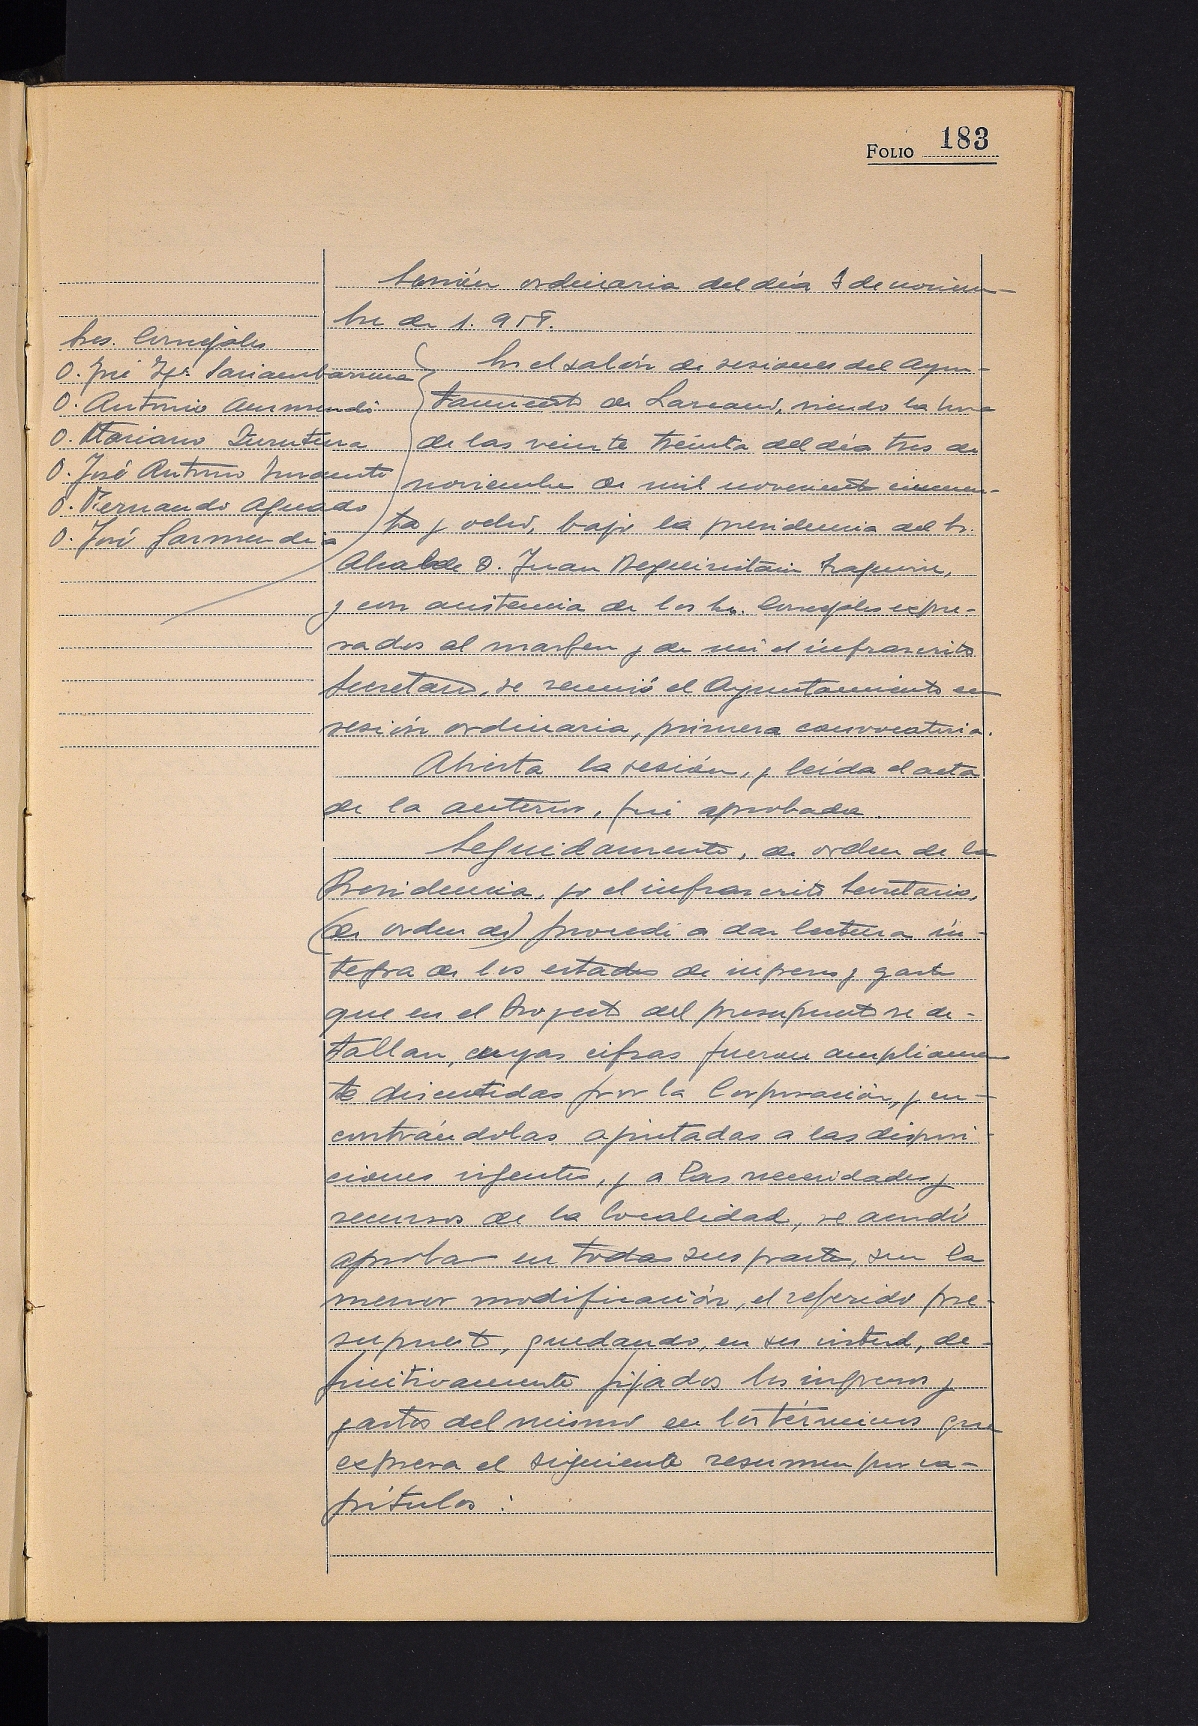 FOLIO 183
Sesión ordinaria del día 3 de noviem-
bre de 1.958.
Sres. Concejales
D. José Mª
D. Antonio Aurmendi
D. Mariano
D. José Antonio
D. Fernando Aguado
D. José Garmendia
En el salón de sesiones del Ayun-
tamiento de Lazcano, siendo la hora
de las veinte treinta del día tres de
noviembre de mil novecientos cincuen-
ta y ocho, bajo la presidencia del Sr.
Alcalde D. Juan Iraguirre,
y con asistencia de los Sres. Concejales expre-
sados al margen y de mi el infrascrito
Secretario, se reunió el Ayuntamiento en
sesión ordinaria, primera convocatoria.
Abierta la sesión, y leída el acta
de la anterior, fué aprobada.
Seguidamente, de orden de la
Presidencia, yo el infrascrito Secretario,
(de orden de) procedí a dar lectura ín-
tegra de los estados de ingresos y gastos
que en el Proyecto del presupuesto se de-
tallan, cuyas cifras fueron ampliamen
te discutidas por la Corporación, y en-
contrándolas ajustadas a las disposi-
ciones vigentes, y a las necesidades y
recursos de la localidad, se acordó
aprobar en todas sus partes, sin la
menor modificación, el referido pre-
supuesto, quedando, en su virtud, de-
finitivamente fijados los ingresos y
gastos del mismo en los términos que
expresa el siguiente resumen por ca-
pítulos: